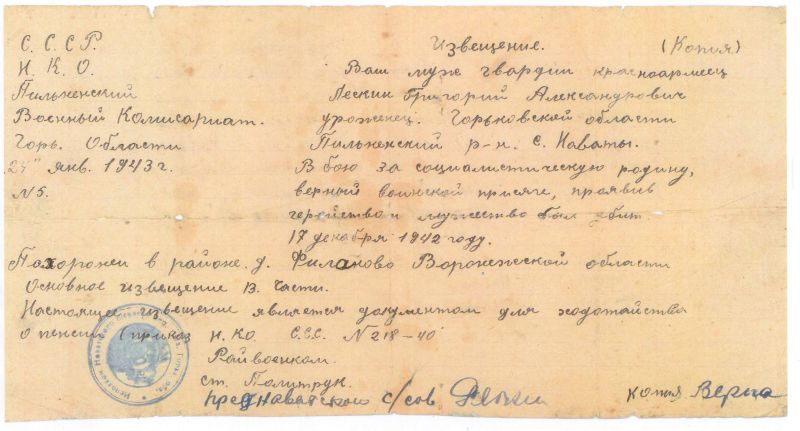 С. С. С. Р.
Н. К. О.
Пильненский
Военный Комисариат.
Горь. Области
25" янв. 1943 г.
N 5.
Извещение. (Копия)
Ваш муж гвардии красноармеец
Лескин Григорий Александрович
уроженец. Горьковской области
Пильненский р-н. с. Наваты.
В бою за социалистическую родину,
верный воинской присяге, проявив
геройство и мужество был убит.
17 декабря 1942 году.
Похоронен в районе. д. Филоново Воронежской области
Основное извещение В. части.
Настоящее извещение является документом для ходотайства
о пенсии (приказ Н. КО. С.С.С. N 218-40
Райвоенком.
ст. Политрук.
пред Наватской с/сов
копия Верна